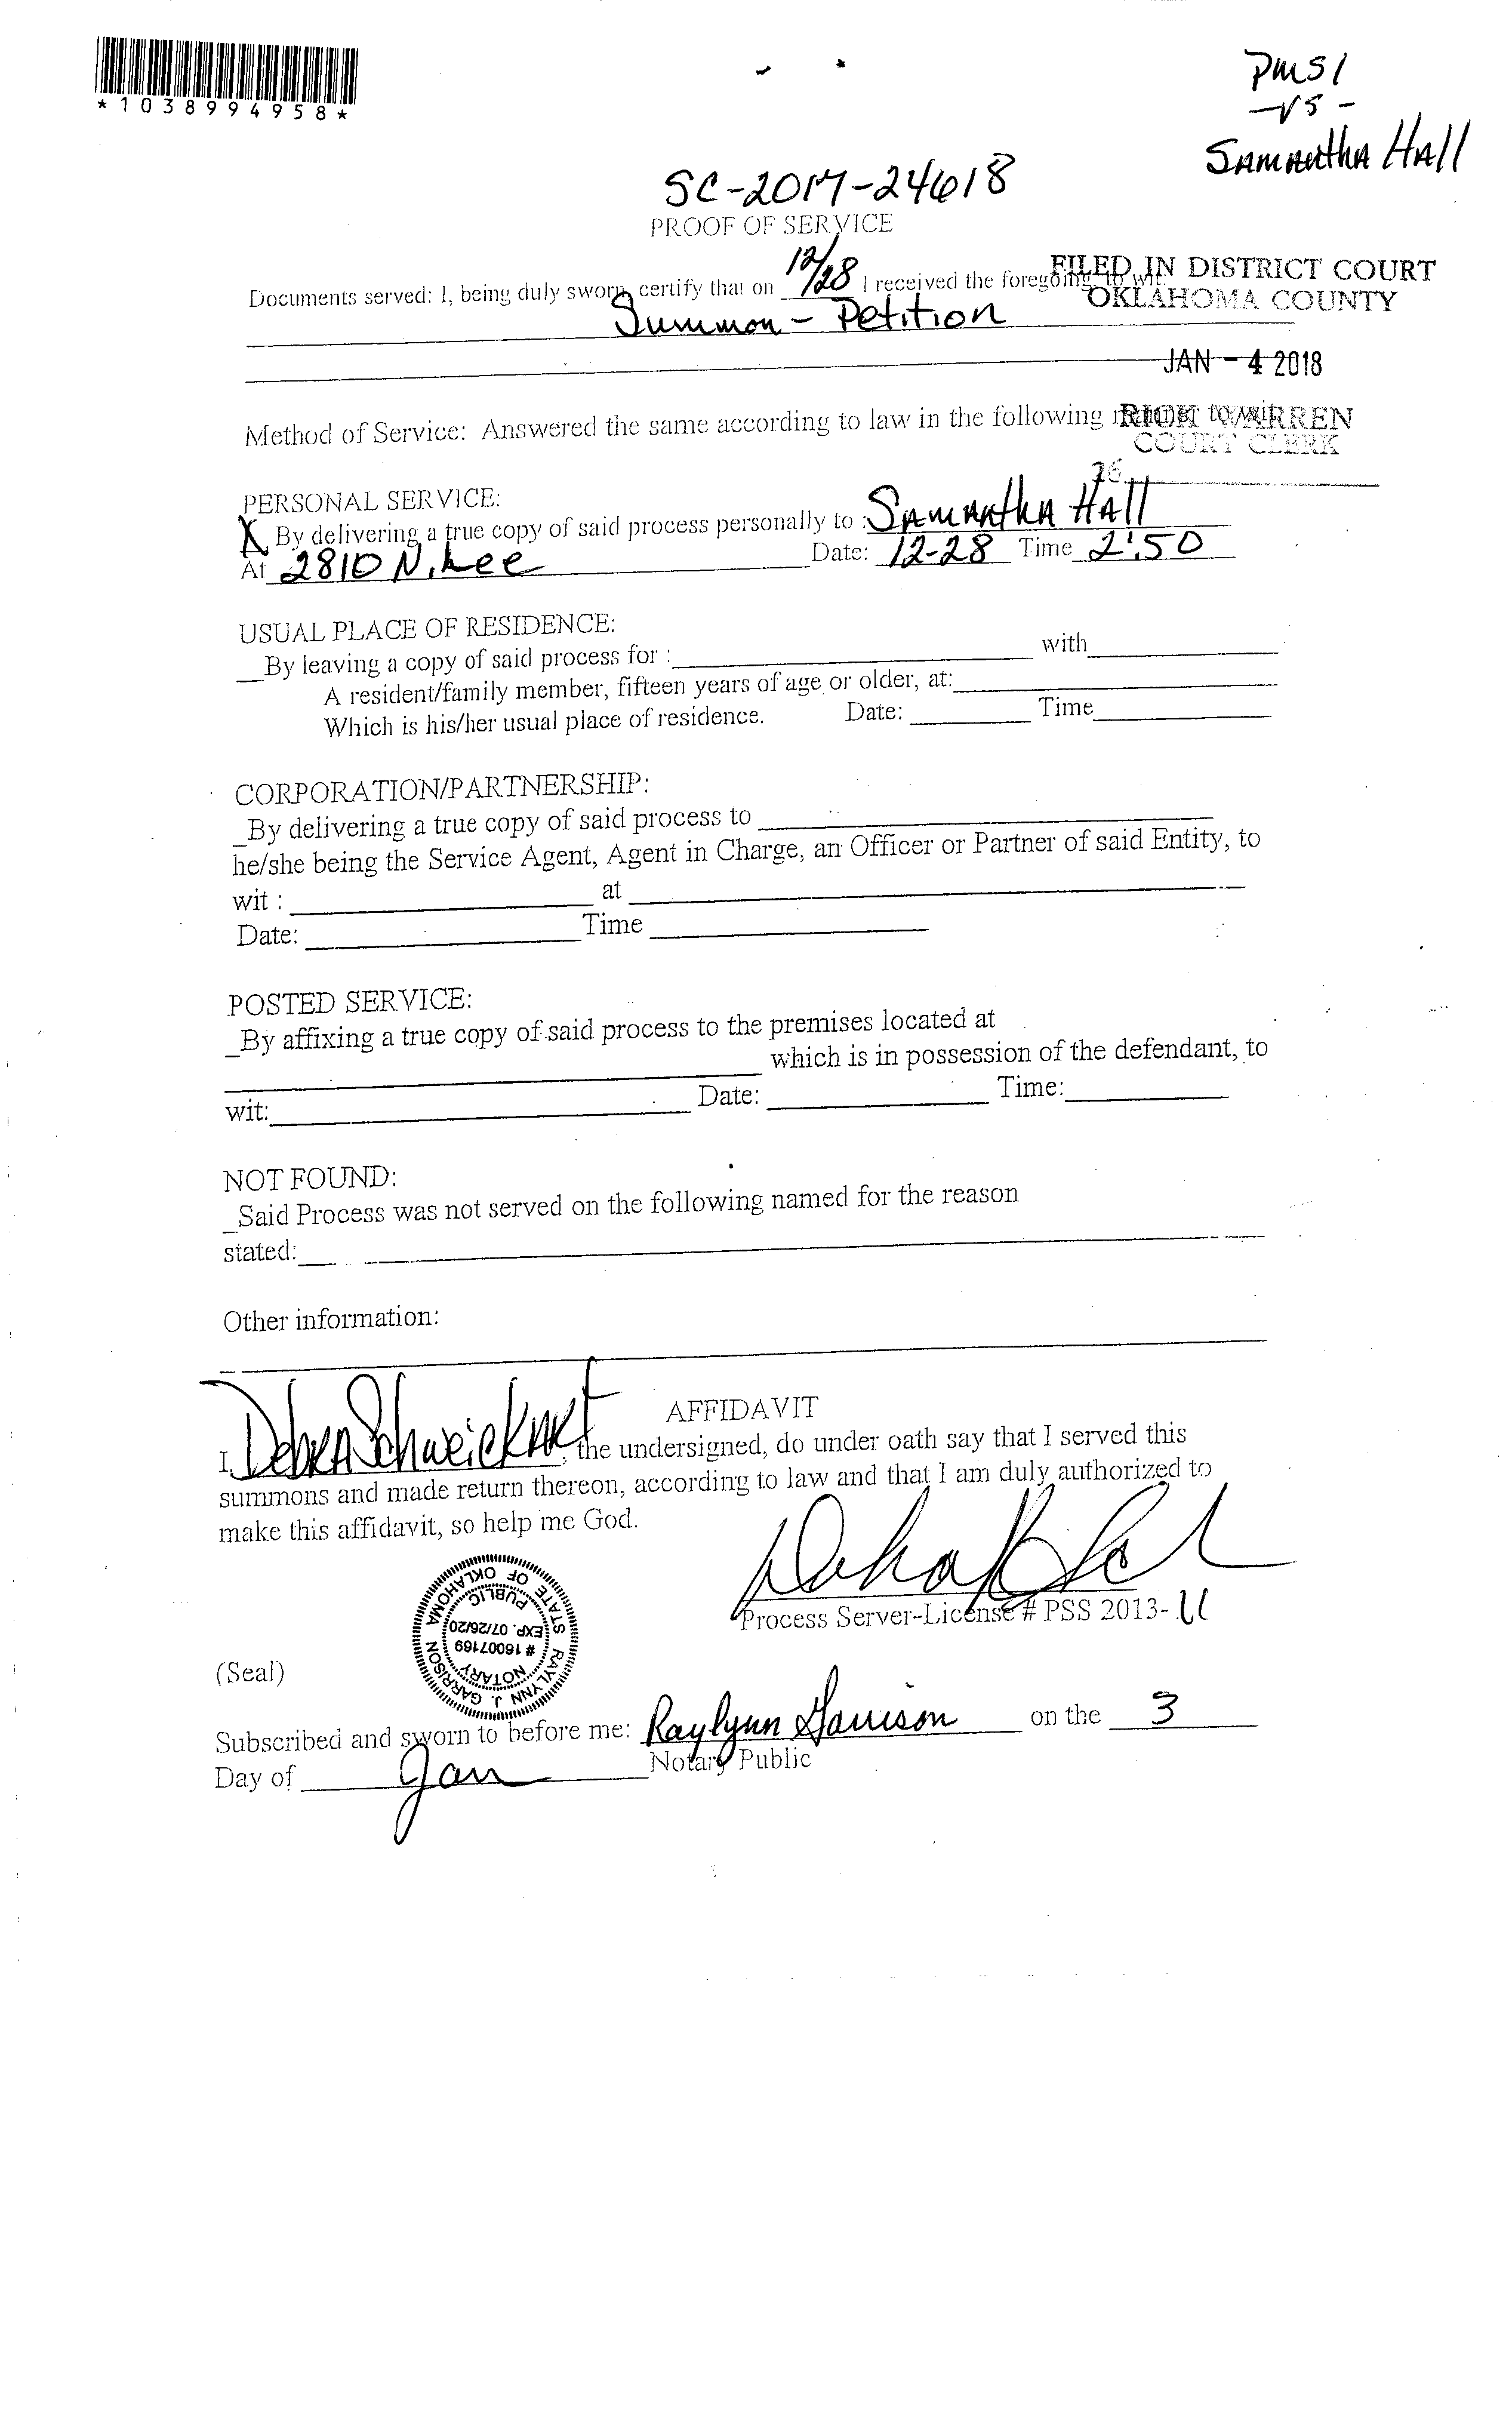 *1038994958*
PMSI
-VS-
SAMANTHA HALL
SC-2017-24618
PROOF OF SERVICE
Documents served: I, being duly sworn, certify that on 12/28 I received the foregoing, to wit:
FILED IN DISTRICT COURT
OKLAHOMA COUNTY
Summon - Petition
JAN - 4 2018
Method of Service: Answered the same according to law in the following manner to wit:
RICK WARREN
COURT CLERK
PERSONAL SERVICE:
X By delivering a true copy of said process personally to : SAMANTHA HALL
At 2810 N. Lee Date: 12-28 Time 2:50
USUAL PLACE OF RESIDENCE:
_By leaving a copy of said process for : with
A resident/family member, fifteen years of age or older, at:
Which is his/her usual place of residence. Date: Time
CORPORATION/PARTNERSHIP:
_By delivering a true copy of said process to
he/she being the Service Agent, Agent in Charge, an Officer or Partner of said Entity, to
wit : at
Date: Time
POSTED SERVICE:
_By affixing a true copy of said process to the premises located at
which is in possession of the defendant, to
wit: Date: Time:
NOT FOUND:
_Said Process was not served on the following named for the reason
stated:
Other information:
AFFIDAVIT
I, Debra Schweickart, the undersigned, do under oath say that I served this
summons and made return thereon, according to law and that I am duly authorized to
make this affidavit, so help me God.
Process Server-License # PSS 2013-11
RAYLYNN J. GARRISON
NOTARY
# 16007169
EXP. 07/26/20
PUBLIC
STATE OF OKLAHOMA
(Seal)
Subscribed and sworn to before me: Raylynn Garrison on the 3
Notary Public
Day of Jan